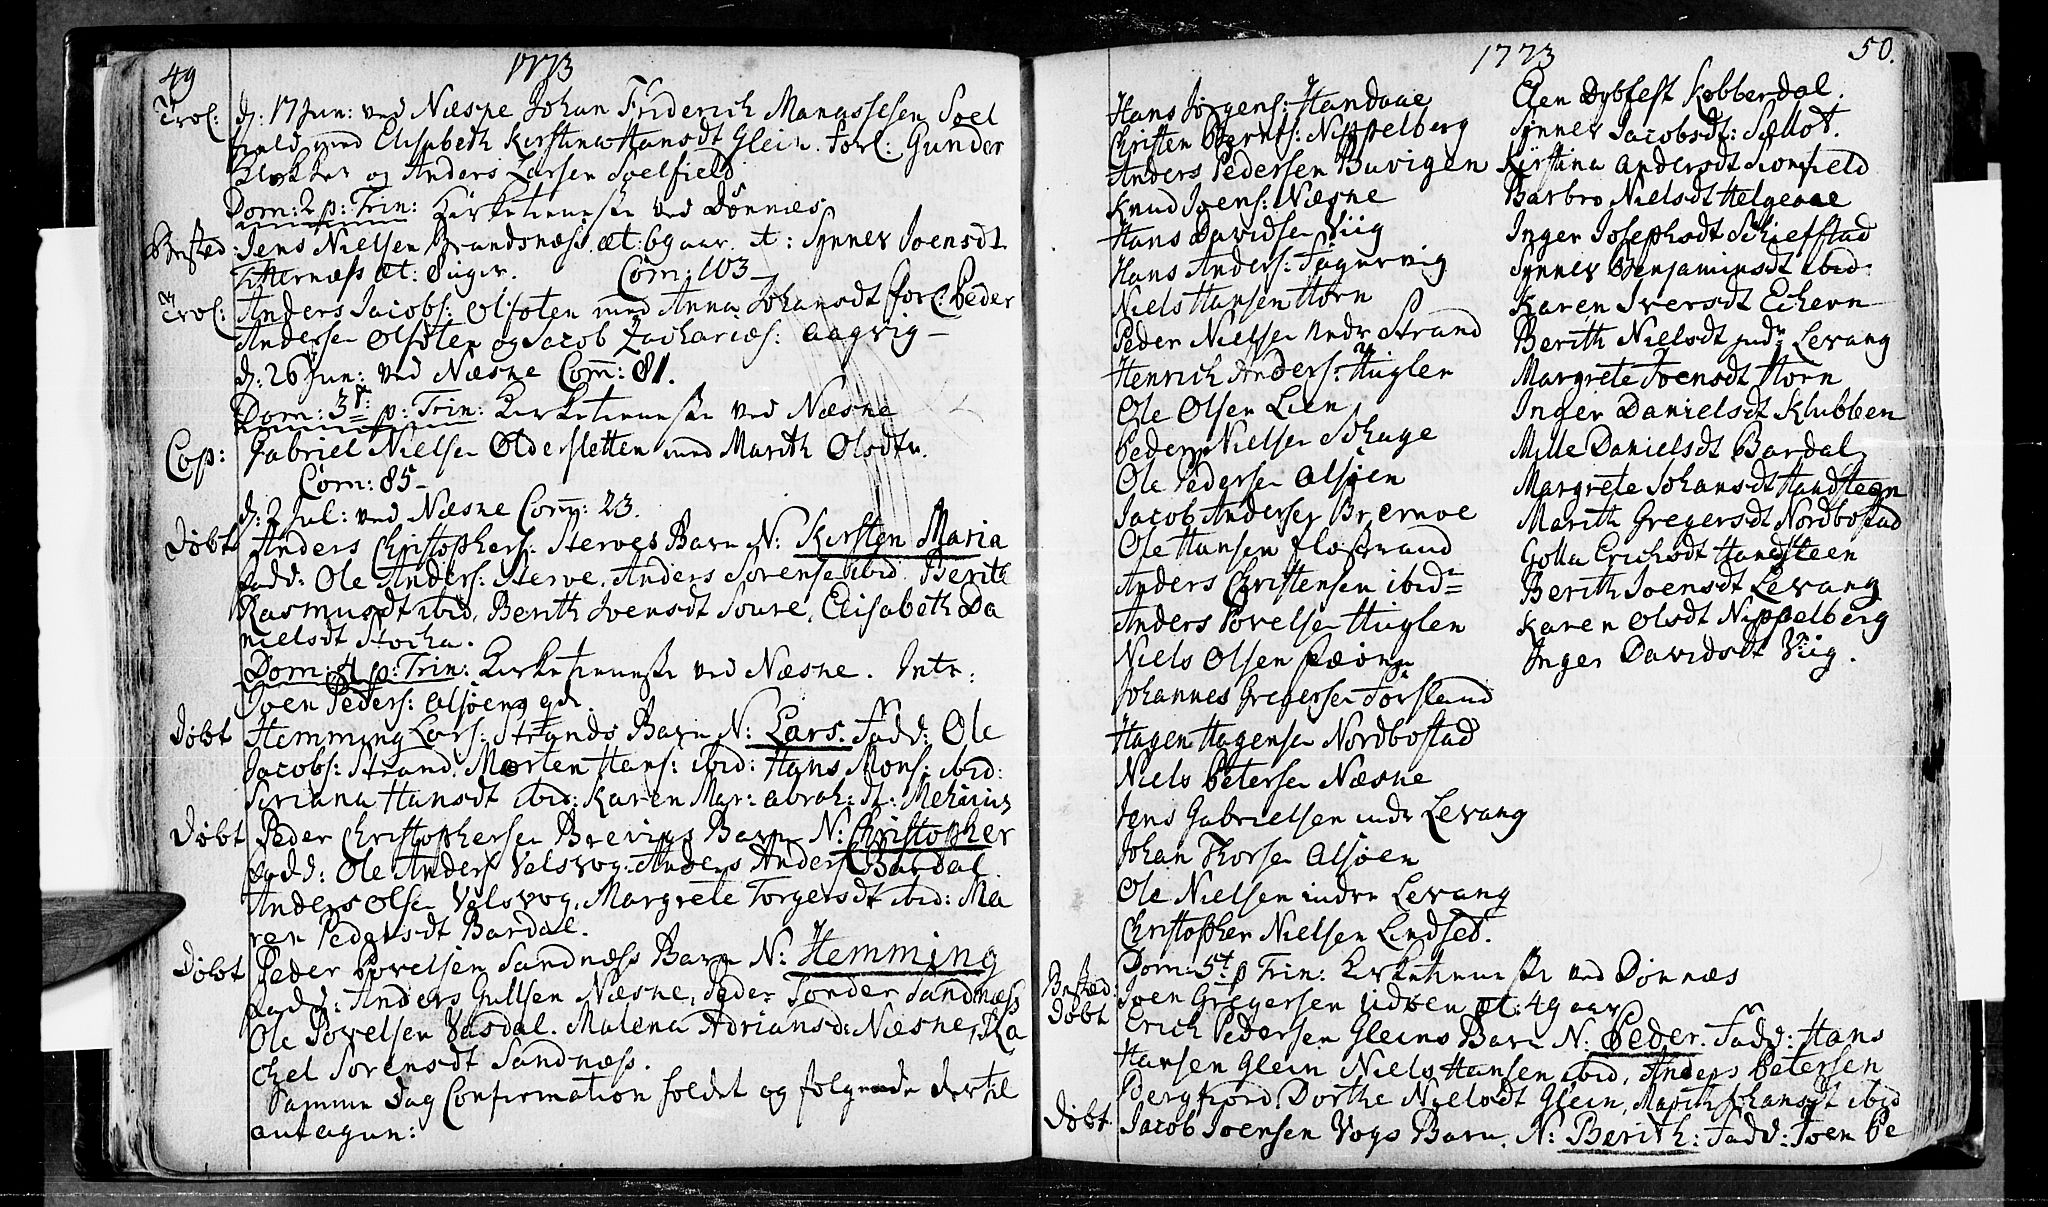 49
1773
Trol: d: 17 Jun: ved Næsne Johan Friderich Manassesen Soel
field med Elisabeth Kirstina Hansdt Glein. Forl: Gunder
Klokker og Anders Larsen Soelfield
Dom: 2 p: Trin: Kirketieneste ved Dönnæs
Bested: Jens Nielsen Brandsnæss æt: 69 aar. It: Synnev Joensdt
Titternæss æt: 8 uger. Com: 103
Trol: Anders Jacobs: Olfoten med Anna Johansdt forl: Peder
Andersen Olfoten og Jacob Zacharies: Aagvig
d: 26 Jun: ved Næsne Com: 81.
Dom: 3 p: Trin: Kirketieneste ved Næsne
Cop: Gabriel Nielsen Oldersletten med Marith Olsdtr.
Com: 85
d: 2 Jul: ved Næsne Com: 23.
Döbt Anders Christophers: Sterves Barn N: Kirsten Maria
Fadd: Ole Anders: Sterve, Anders Sörensen ibid. Berith
Rasmusdt ibid, Berith Joensdt Soure, Elisabeth Da
nielsdt Stocha.
Dom: 4 p: Trin: Kirketieneste ved Næsne. Intr:
Joen Peders: Alsöens
Döbt Hemming Lars: Strands Barn N: Lars. Fadd: Ole
Jacobs: Strand. Morten Hans: ibid: Hans Mons: ibid:
Siriana Hansdt ibid: Karen Mar: Abrah: dt:
Döbt Peder Christophersen Brevigs Barn N: Christopher
Fadd: Ole Anders Valsvog. Anders Anders Bardal.
Anders Olsen Valsvog. Margrete Torgersdt ibid: Ma
ren Pedersdt Bardal.
Döbt Peder Povelsen Sandnæss Barn N: Hemming
Fadd: Anders Gullsen Næsne, Peder Tonder Sandnæss
Ole Povelsen Vasdal. Malena Adriansd: Næsne, Ra
chel Sörensdt Sandnæss.
Samme Dag Confirmation holdet og fölgende dertil
antagen:
1773
50.
Hans Jörgens: Handaae
Christen Bernts: Nippelberg
Anders Pedersen Buvigen
Knud Joens: Næsne
Hans Davidsen Viig
Hans Anders: Fagervig
Niels Hansen Horn
Peder Nielsen Strand
Henrich Anders: Huglen
Ole Olsen Lien
Peder Nielsen Schage
Ole Pedersen Alsöen
Jacob Andersen Bremve
Ole Hansen Flostrand
Anders Christensen ibid
Anders Povelsen Huglen
Niels Olsen
Johannes Gregersen Forsland
Hagen Hagensen Nordbostad
Niels Petersen Næsne
Jens Gabrielsen indr Levang
Johan Thorsen Alsöen
Ole Nielsen indre Levang
Christopher Nielsen Lindset.
Elen Dybfest Kobberdal.
Synnev Jacobsdt: Sellot.
Kirstina Andersdt
Barbro Nielsdt Helgeaae
Inger Josephsdt Schiefstad
Synnev Benjaminsdt ibid:
Karen Iversdt Echern
Berith Nielsdt indr Levang
Margrete Joensdt Horn
Inger Danielsdt Klubben
Mille Danielsdt Bardal
Margrete Johansdt Handsteen
Marith Gregersdt Nordbostad
Golla Erichsdt Handsteen
Berith Joensdt Levang
Karen Olsdt Nippelberg
Inger Davidsdt Viig.
Dom: 5t p Trin: Kirketieneste ved Dönnæs
Bested: Joen Gregersen æt: 49 aar
Döbt Erich Pedersen Gleins Barn N: Peder. Fadd: Hans
Hansen Glein Niels Hansen ibid, Anders Petersen
Bergfiord. Dorthe Nielsdt Glein, Marith Johansdt ibid
Döbt Jacob Joensen Vogs Barn. N: Berith: Fadd: Joen Pe